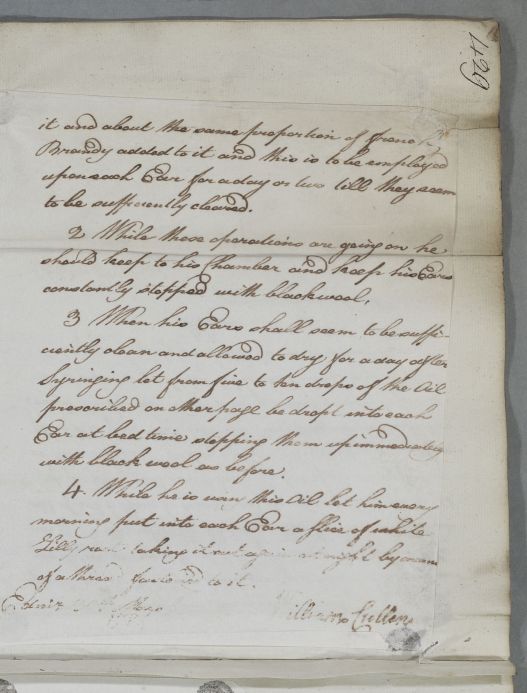 429
it and about the same proportion of french
Brandy added to it and this is to be employed
upon each Ear for a day or two till they seem
to be sufficiently cleared.
2 While these operations are going on he
should keep to his Chamber and keep his Ears
constantly stopped with black wool.
3 When his Ears shall seem to be suffi-
ciently clean and allowed to dry for a day after
Syringing let from five to ten drops of the Oil
prescribed on other page be dropt into each
Ear at bed time stopping them up immediately
with black wool as before.
4. While he is using this Oil let him every
morning put into each Ear a slice of white
Lilly root taking it out again at night by means
of a thread fastened to it.
Edinr
William Cullen